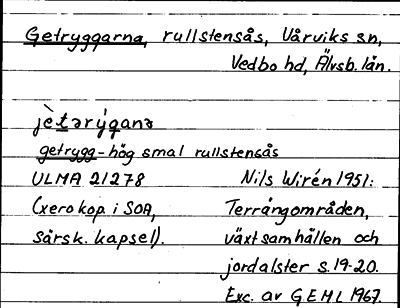 Getryggarna, rullstensås, Vårviks sn,
Vedbo hd, Älvsb. län.
jètərýganə
getrygg-hög smal rullstensås
ULMA 21278 Nils Wirén 1951:
(xerokop. i SOA, Terrängområden,
särsk. kapsel). växtsamhällen och
jordalster s. 19-20.
Exc. av G.E.M.L 1967.